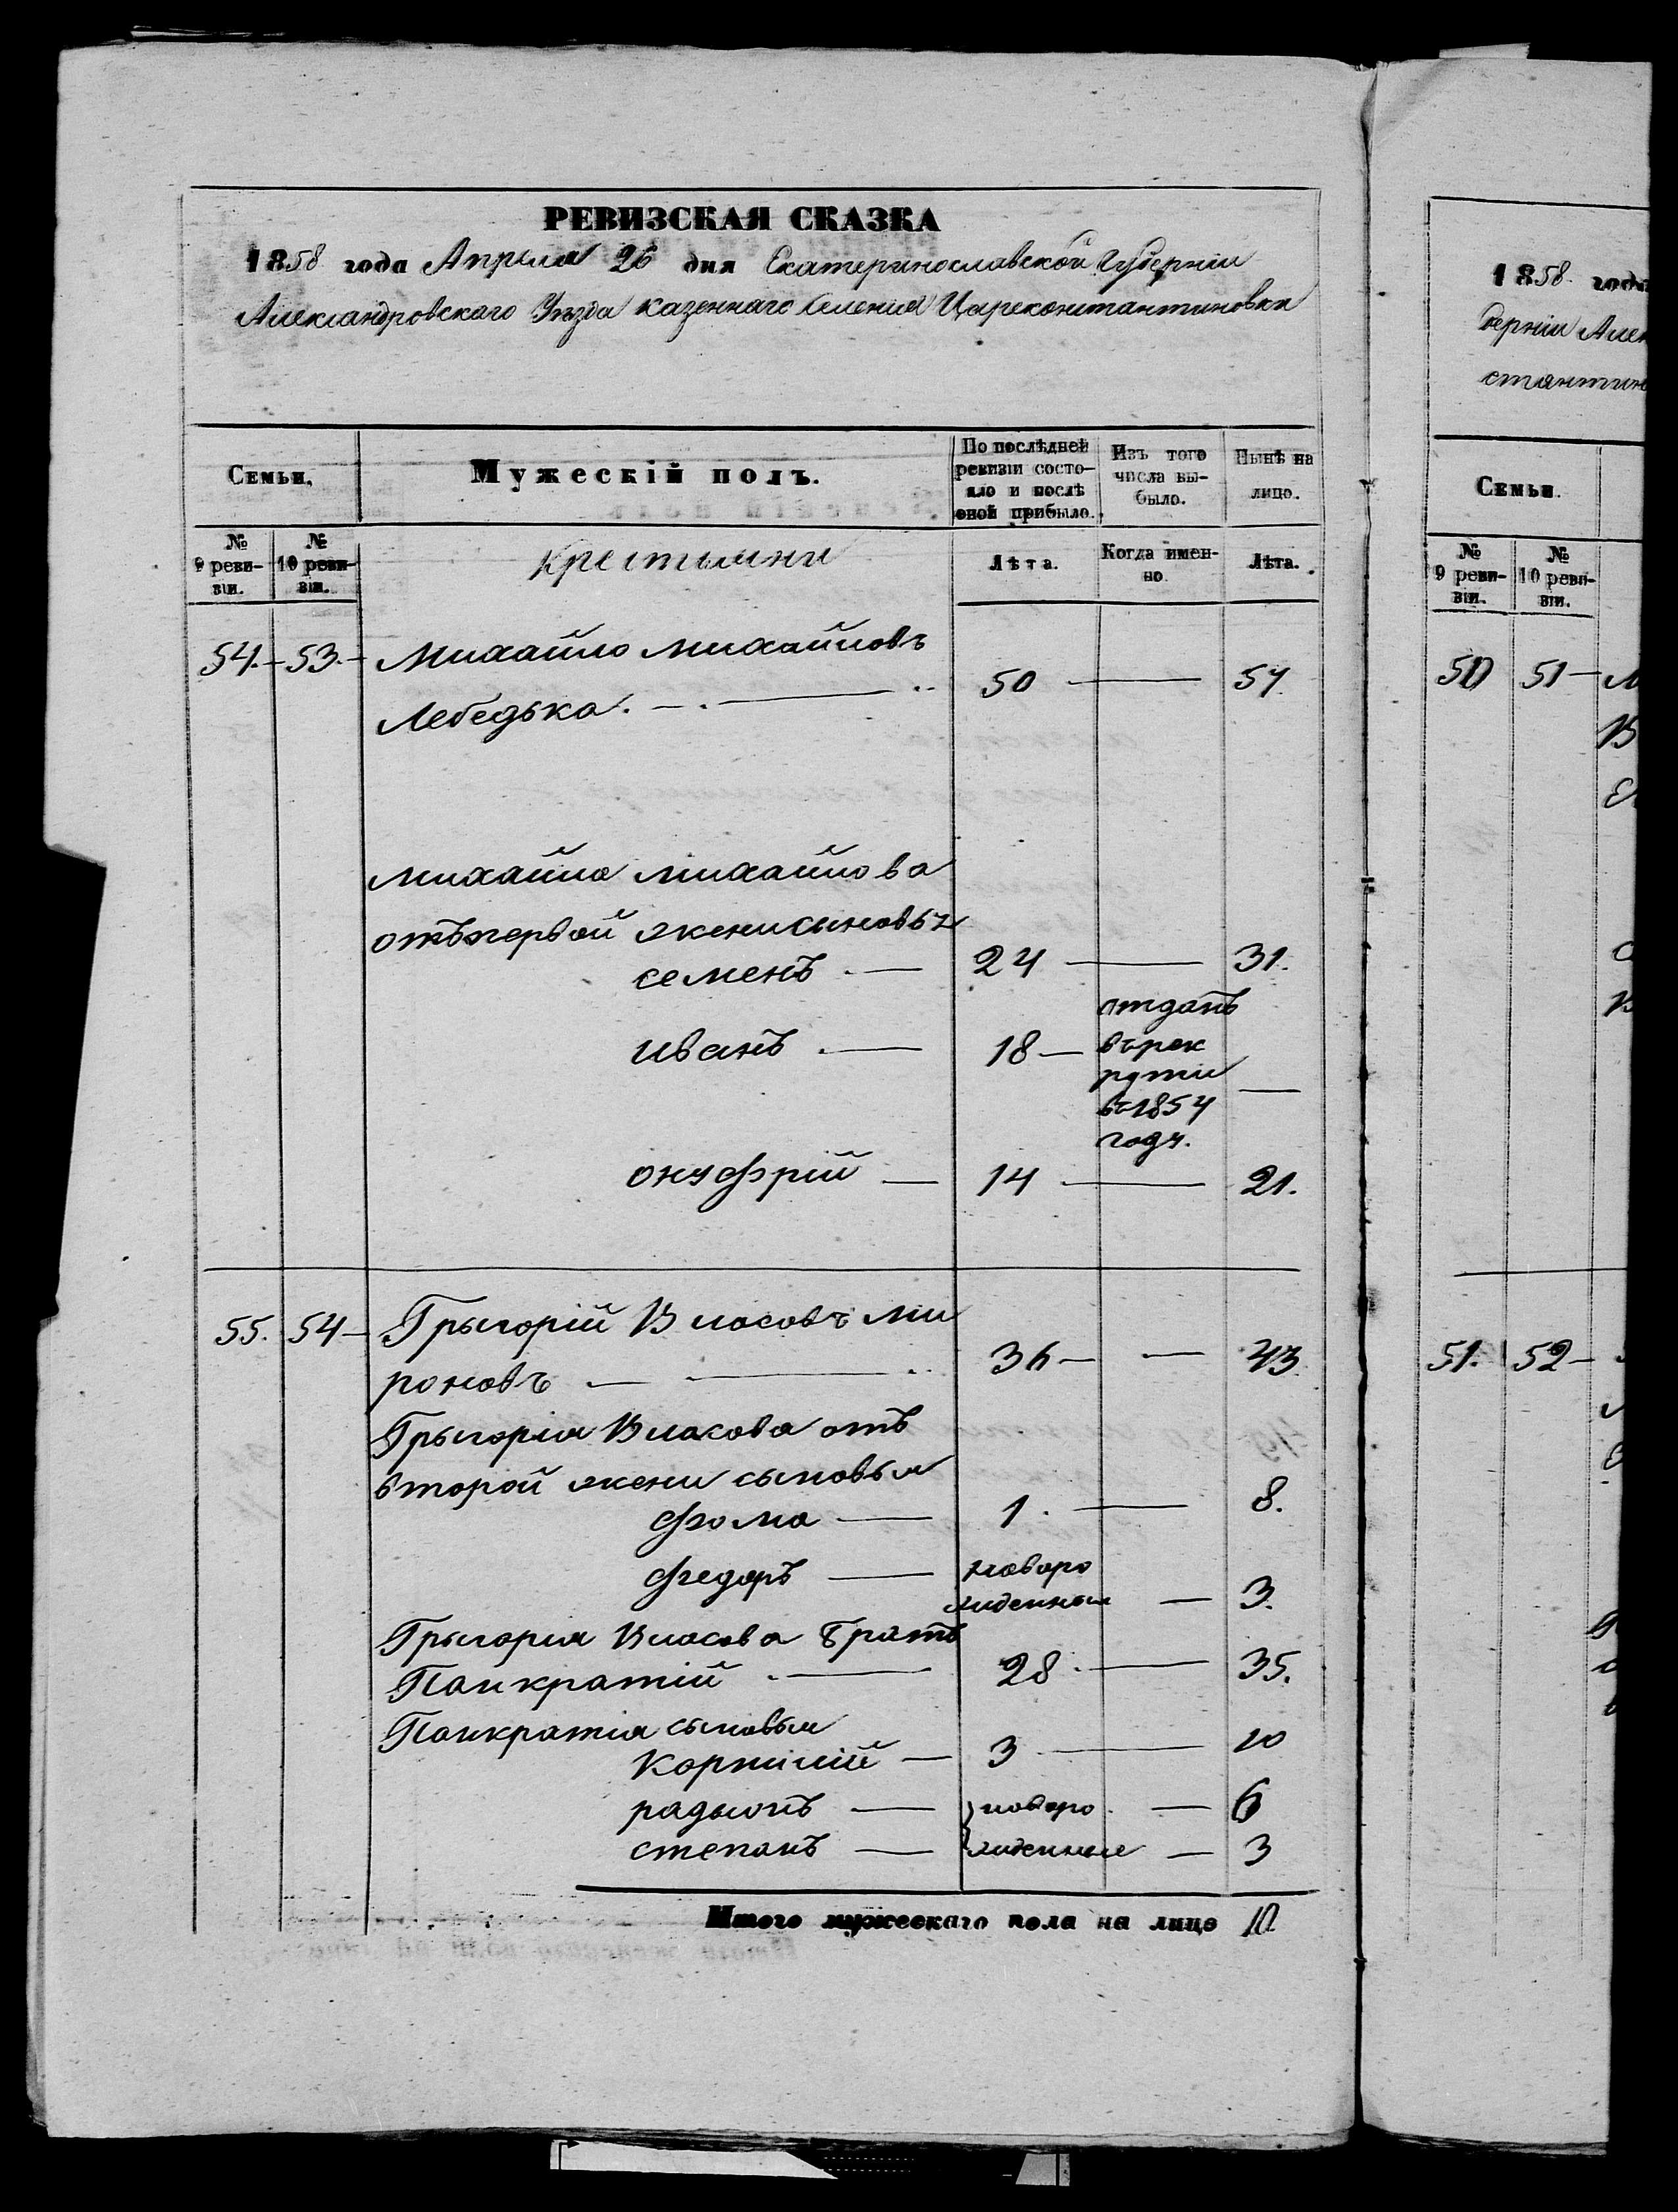 РЕВИЗСКАЯ СКАЗКА
1858 года Апреля 26 дня Екатеринославской Губернiи
Александровскаго Уезда казеннаго селенiя Цареконстантиновки
Семьи.
Мужескiй полъ.
По послѣдней ревизiи состояло и послѣ оной прибыло.
Изъ того числа выбыло.
Нынѣ на лицо.
№ 9 ревизiи.
№ 10 ревизiи.
крестьяни
Лѣта.
Когда именно
Лѣта.
54.— 53.— Михайло михайловъ
Лебедька. 50 — 57.
михайла михайлова
отъ первой жени сыновья
семенъ — 24 — 31.
иванъ — 18 — отданъ
въ рек
рути —
въ 1854
году.
онуфрiй — 14 — 21.
55. 54— Грыгорiй Власовъ ми
роновъ — 36 — — 43.
Грыгорiя Власова отъ
второй жени сыновья
фома — 1. — 8.
федоръ — новоро
жденный — 3.
Грыгорiя Власова братъ
Панкратiй — 28 — 35.
Панкратiя сыновья
корнiлiй — 3 — 10
радыонъ — новоро — 6
степанъ — жденные — 3
Итого мужескаго пола на лицо 10.
1858 года
бернiи Алек
стантин
Семьи.
№ 9 ревизiи.
№ 10 ревизiи.
50 51—
51. 52—